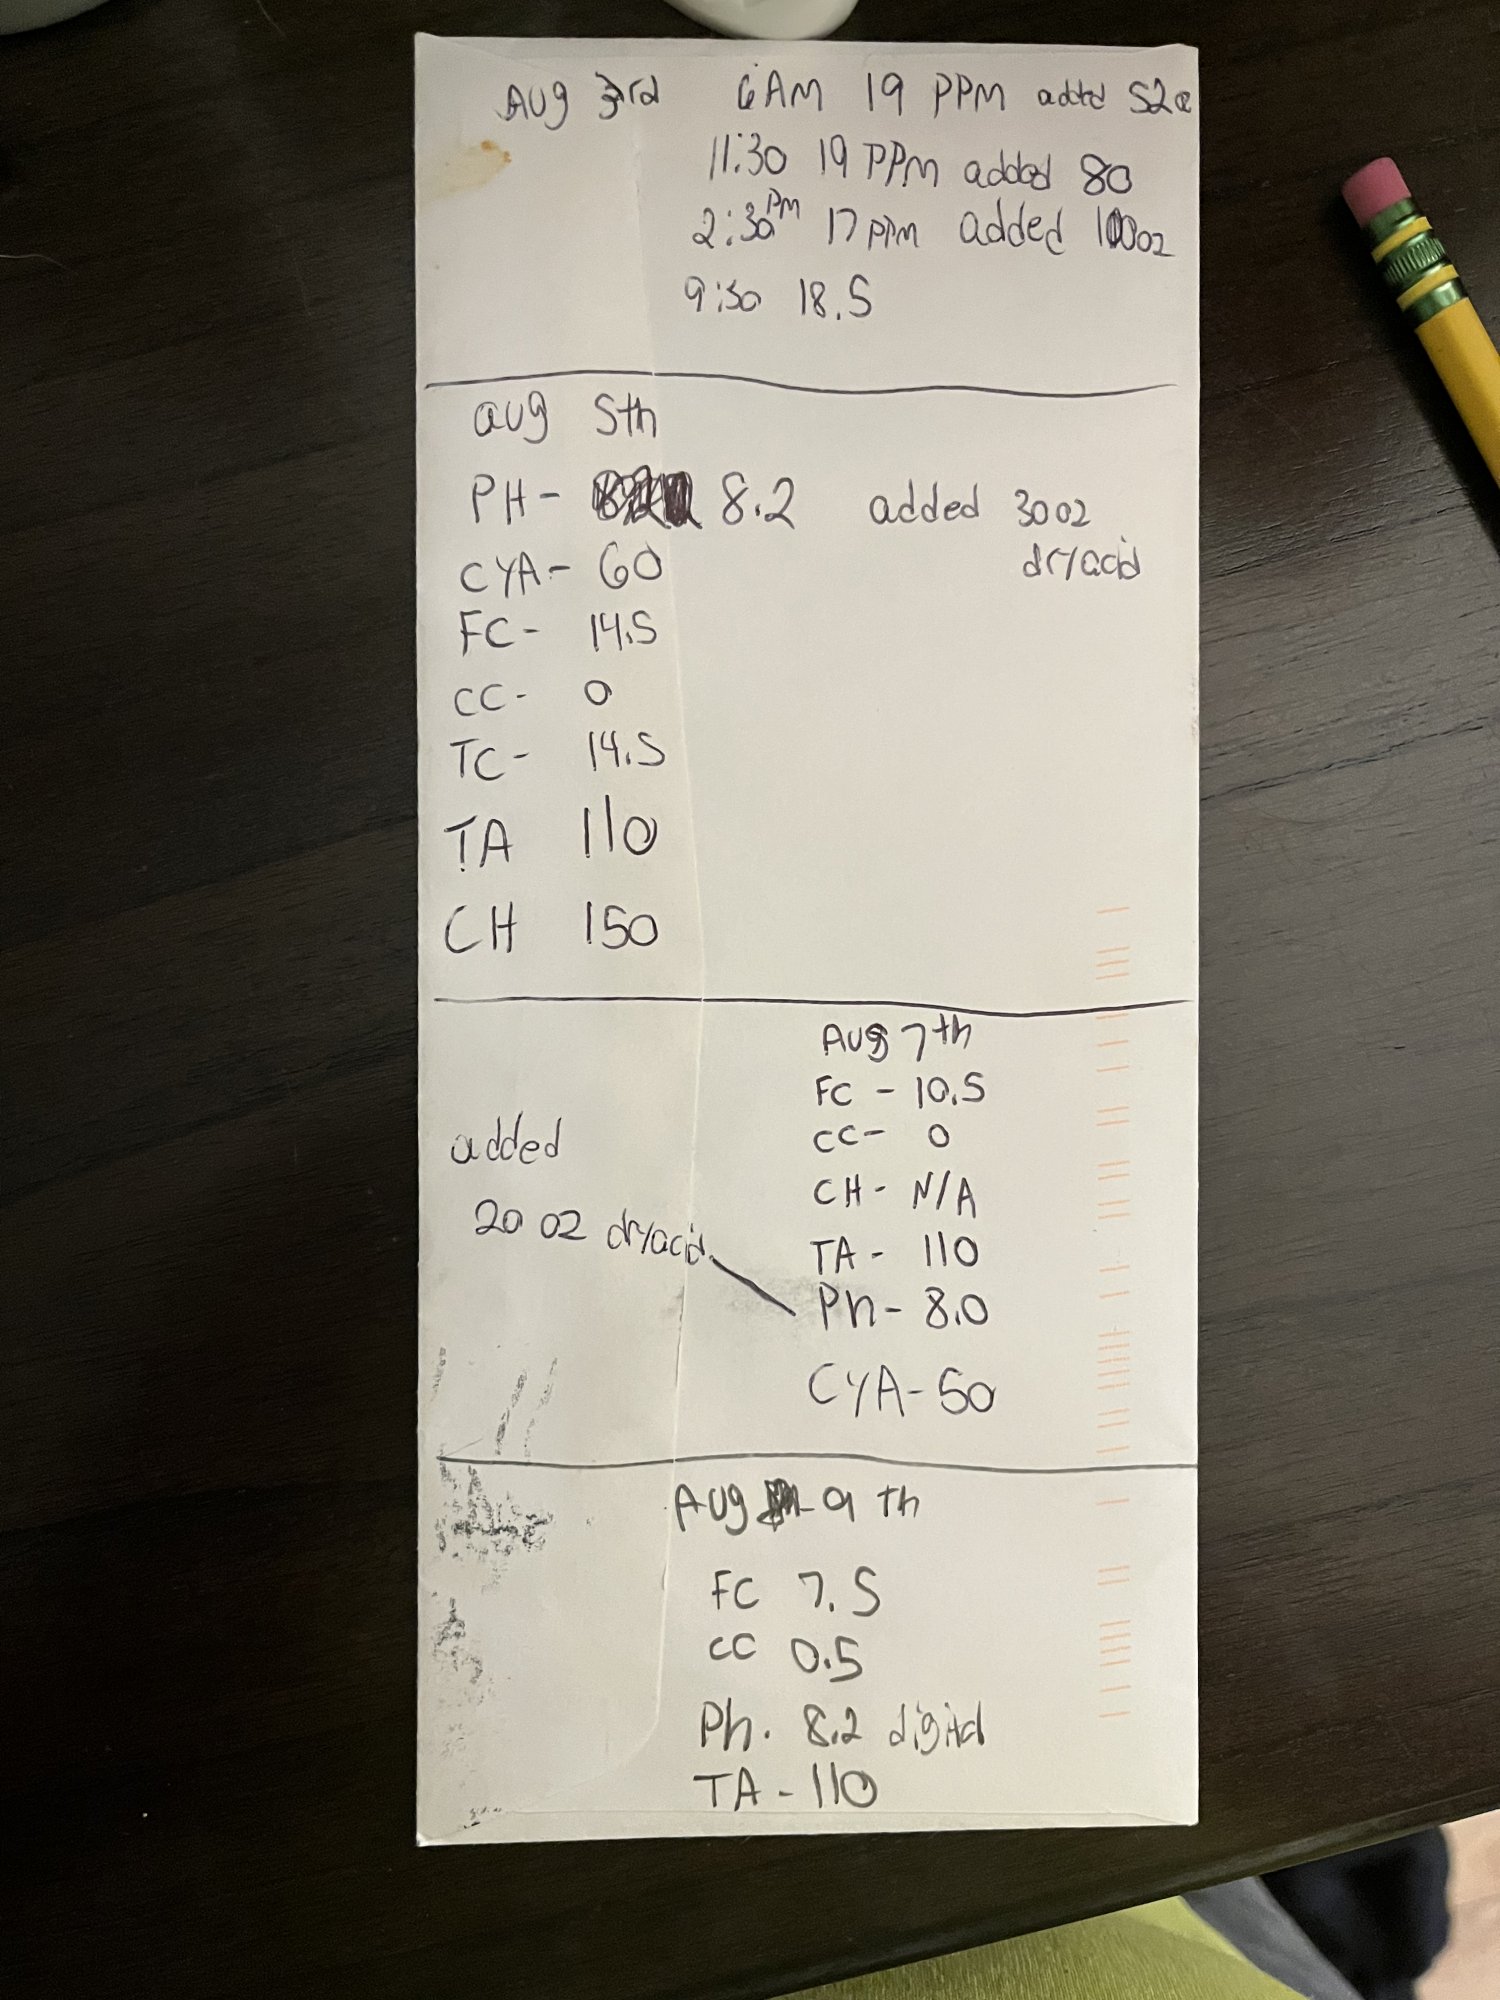 Aug 3rd 6 AM 19 PPM added 52oz
11:30 19 PPM added 80
2:30PM 17 PPM added 100oz
9:30 18.5
aug 5th
PH- 8.2 added 30 oz
dryacid
CYA- 60
FC- 14.5
CC- 0
TC- 14.5
TA 110
CH 150
Aug 7th
FC - 10.5
CC- 0
CH- N/A
TA - 110
added
20 oz dryacid
Ph- 8.0
CYA- 50
Aug 9 th
FC 7.5
CC 0.5
Ph. 8.2 digital
TA - 110